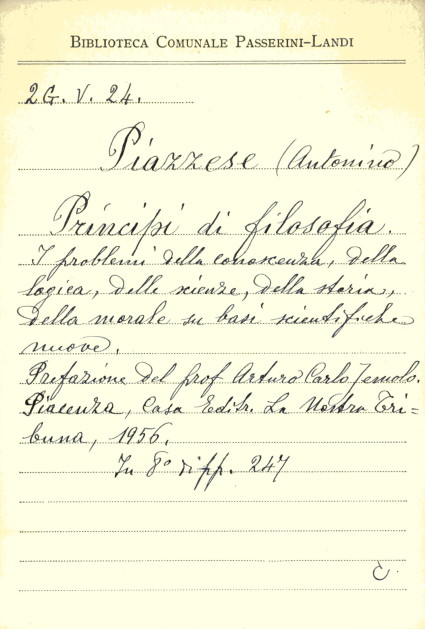 BIBLIOTECA COMUNALE PASSERINI-LANDI
2G. V. 24.
Piazzese (Antonino)
Principi di filosofia.
I problemi della conoscenza, della
logica, delle scienze, della storia,
della morale su basi scientifiche
nuove.
Prefazione del prof Arturo Carlo Jemolo.
Piacenza, Casa Editr. La Nostra Tri=
buna, 1956.
In 8° di pp. 247
C.